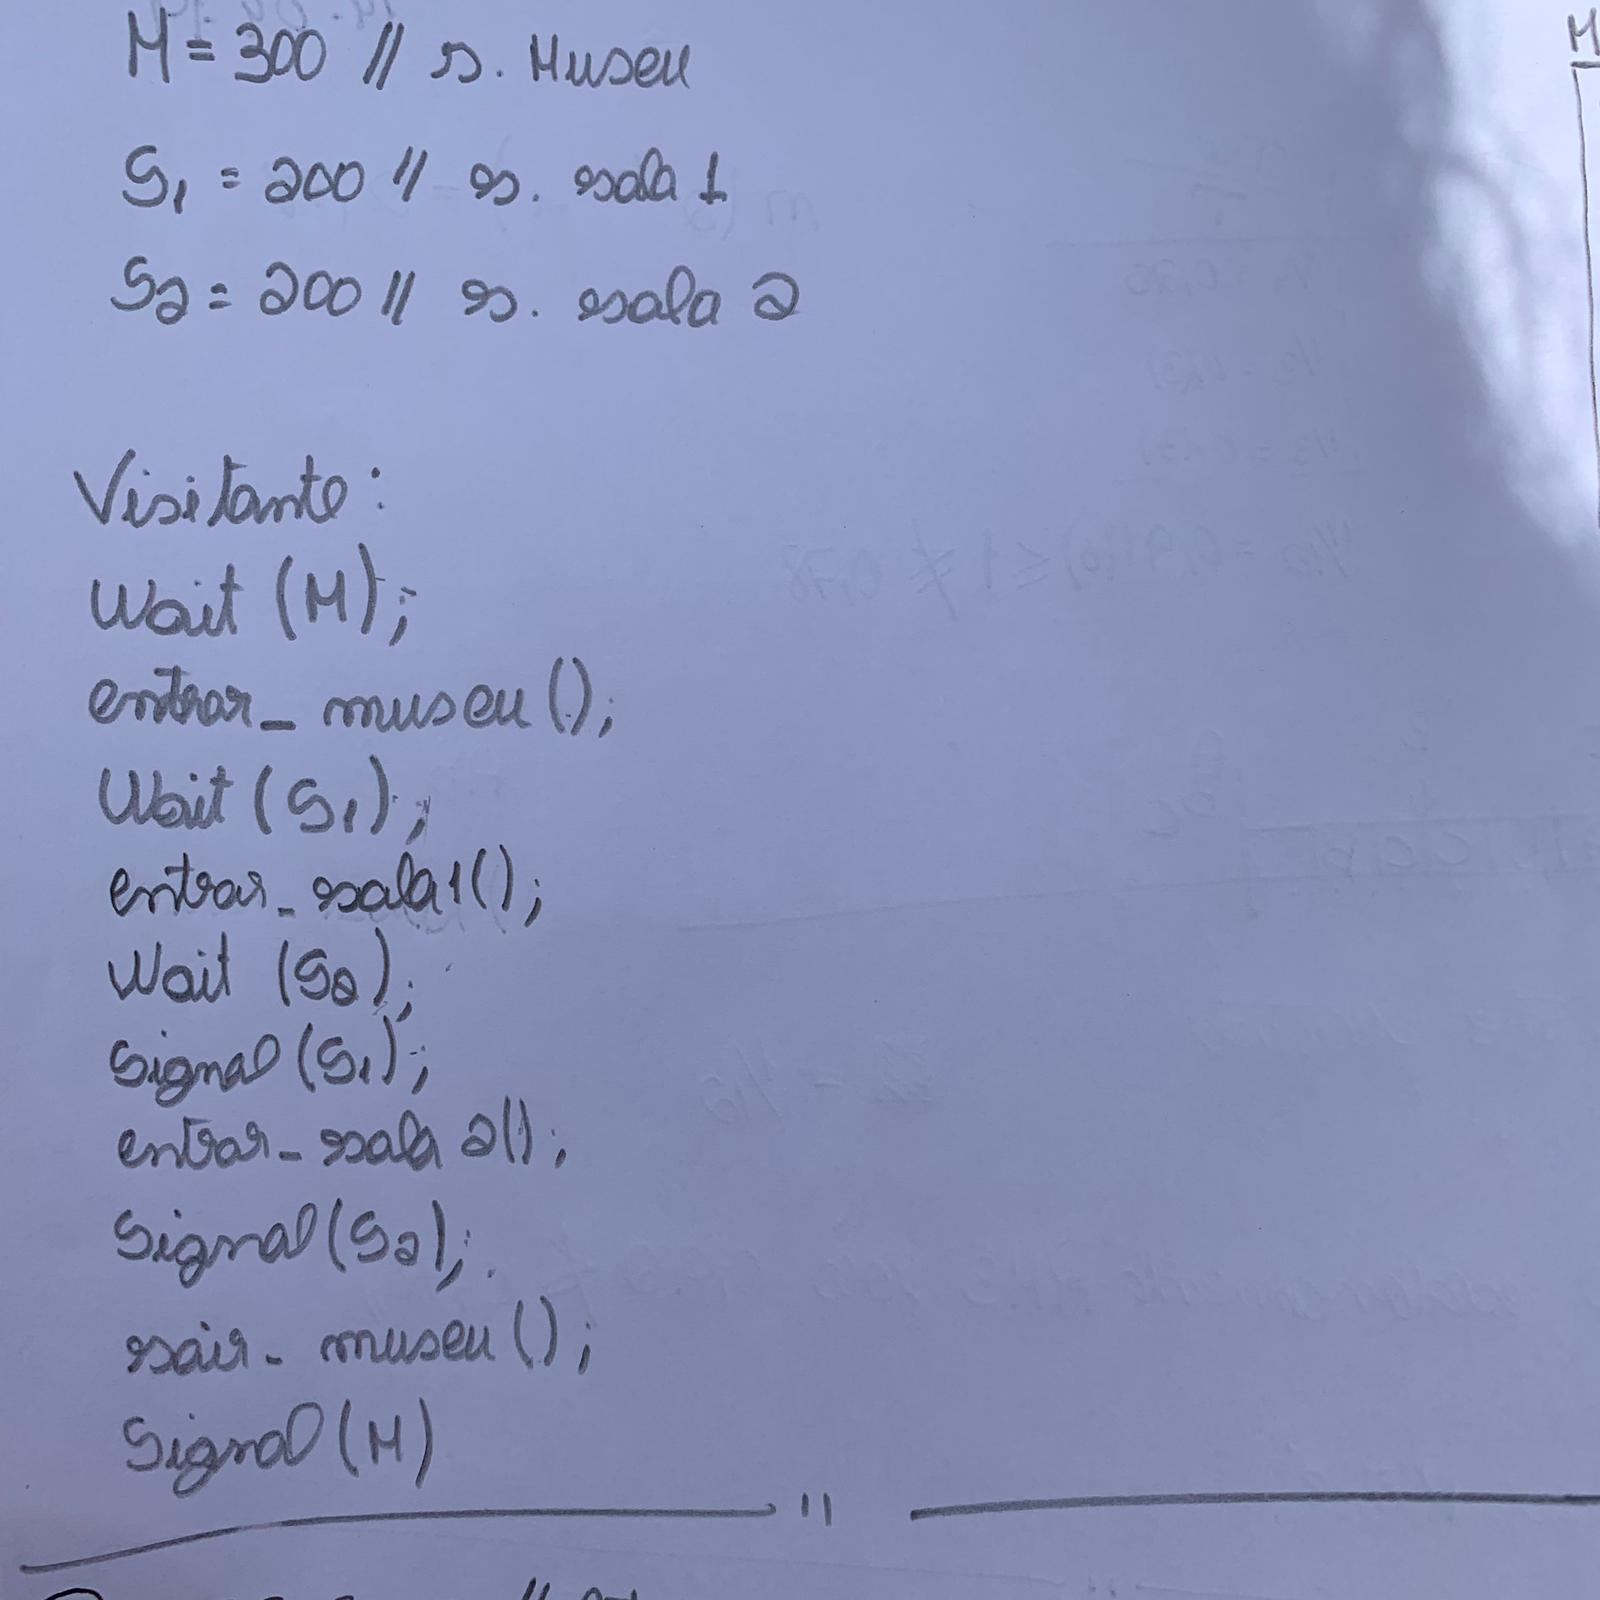 M = 300 // s. Museu
S1 = 200 // s. sala 1
S2 = 200 // s. sala 2
Visitante:
Wait (M);
entrar_ museu ();
Wait (S1);
entrar_ sala1();
Wait (S2);
Signal (S1);
entrar_ sala 2();
Signal (S2);
sair_ museu ();
Signal (M)